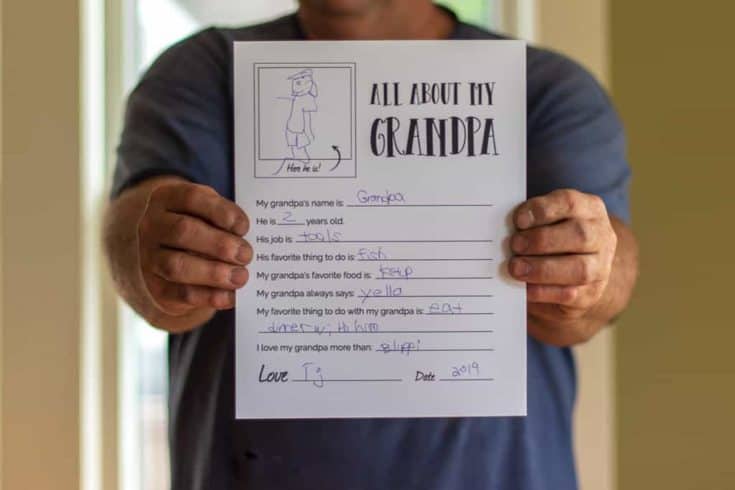 ALL ABOUT MY
GRANDPA
Here he is!
My grandpa's name is: Grandpa
He is 2 years old.
His job is: tools
His favorite thing to do is: fish
My grandpa's favorite food is:
My grandpa always says: yello
My favorite thing to do with my grandpa is: eat
dinner with him
I love my grandpa more than: blippi
Love Tj
Date 2019